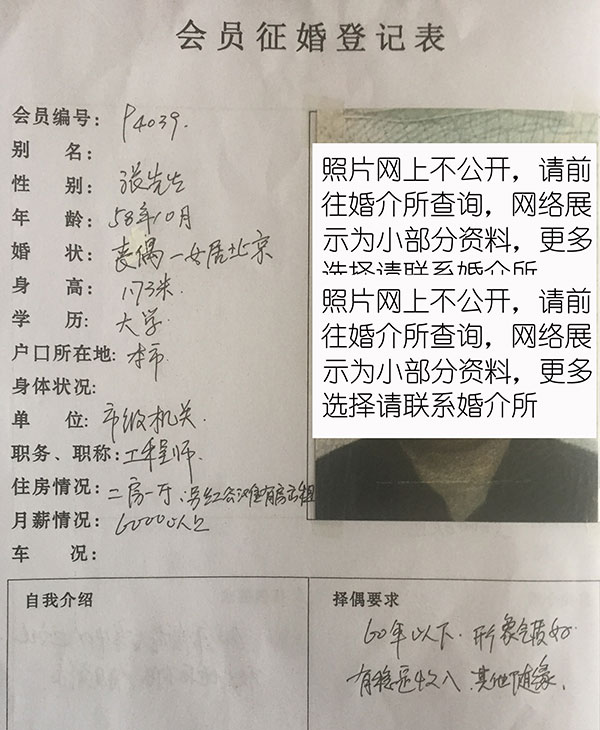 会员征婚登记表
会员编号: P4039.
别 名:
性 别: 张先生
年 龄: 58年10月
婚 状: 丧偶一女居北京
身 高: 1.73米.
学 历: 大学
户口所在地: 本市
身体状况:
单 位: 市级机关.
职务、职称: 工程师.
住房情况: 二房一厅.
月薪情况: 6000以上
车 况:
照片网上不公开，请前
往婚介所查询，网络展
示为小部分资料，更多
选择请联系婚介所
照片网上不公开，请前
往婚介所查询，网络展
示为小部分资料，更多
选择请联系婚介所
自我介绍
择偶要求
60年以下. 形象气质好
有稳定收入 其他随缘.